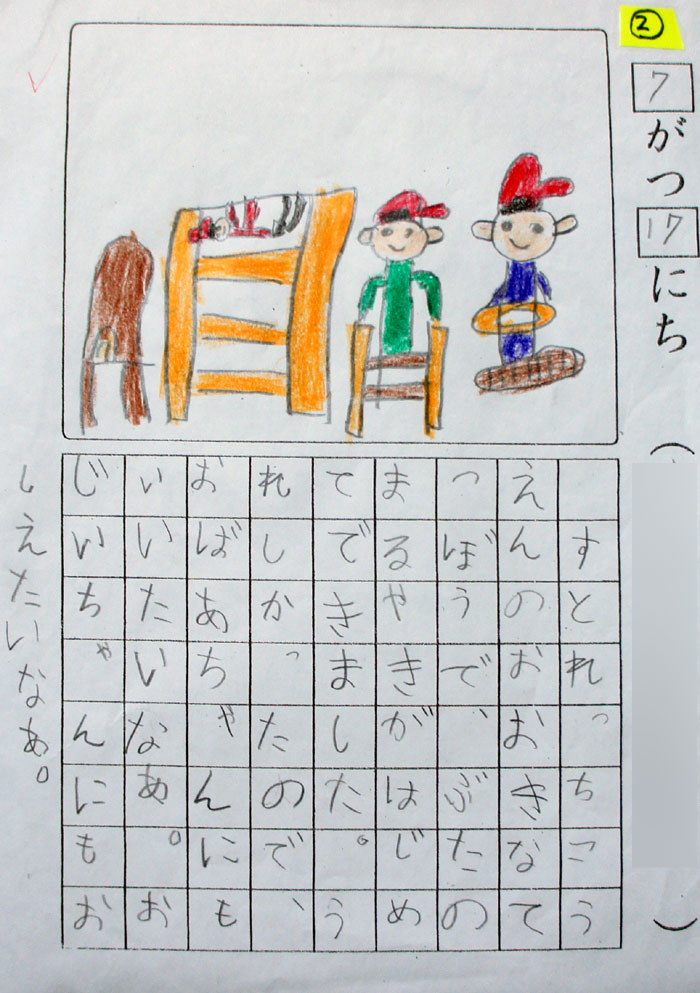 ②
7がつ17にち（ ）
すとれっちこう
えんのおおきなて
っぼうで、ぶたの
まるやきがはじめ
てできました。う
れしかったので、
おばあちゃんにも
いいたいなあ。お
じいちゃんにもお
しえたいなあ。